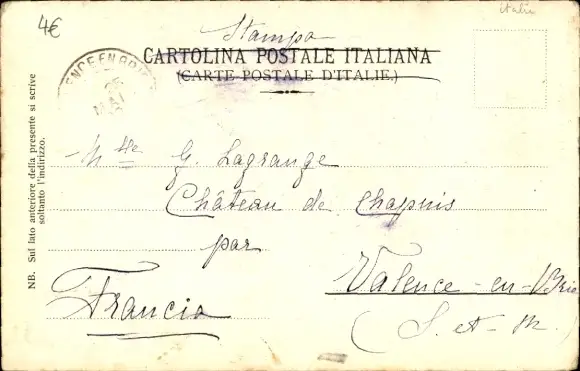 4€
Italie
Stampa
CARTOLINA POSTALE ITALIANA
(CARTE POSTALE D'ITALIE.)
Mlle G. Lagrange
Château de Chapuis
par
Valence-en-Brie
(S. et M.)
Francia
NB. Sul lato anteriore della presente si scrive
soltanto l'indirizzo.